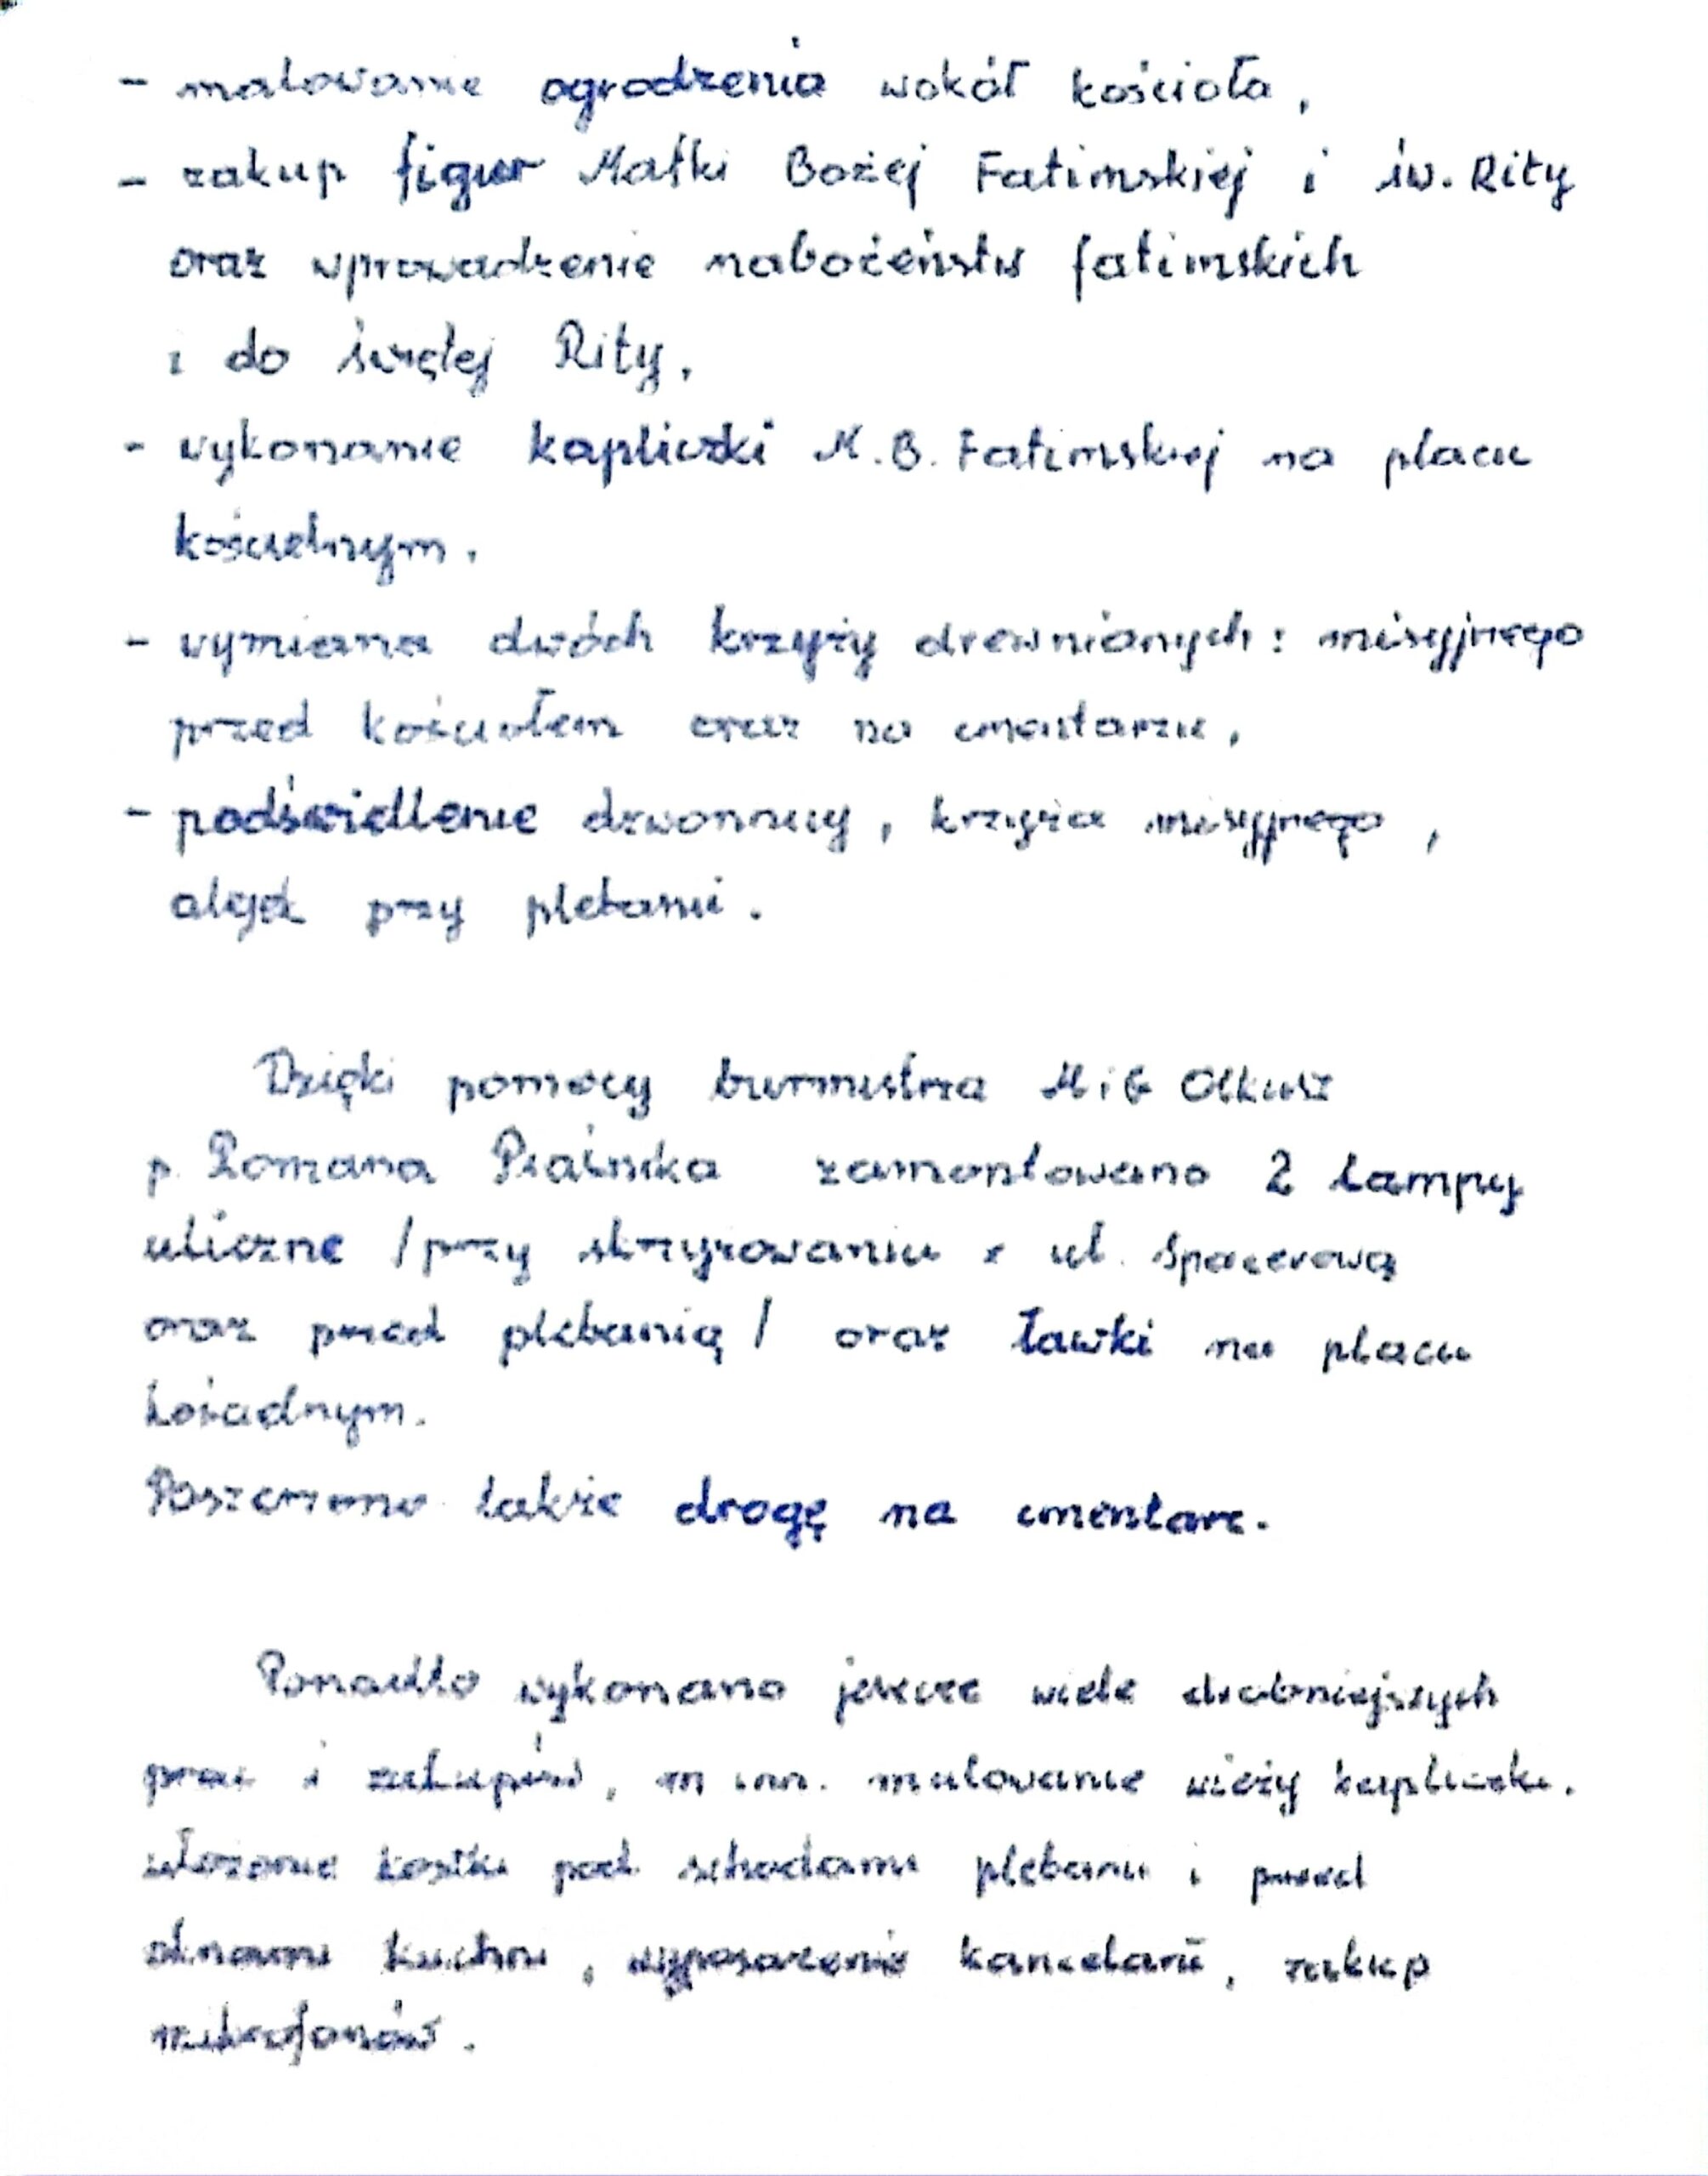 - malowanie ogrodzenia wokół kościoła,
- zakup figur Matki Bożej Fatimskiej i św. Rity
oraz wprowadzenie nabożeństw fatimskich
i do świętej Rity,
- wykonanie kapliczki M.B. Fatimskiej na placu
kościelnym.
- wymiana dwóch krzyży drewnianych: misyjnego
przed kościołem oraz na cmentarzu,
- podświetlenie dzwonnicy, krzyża misyjnego,
alejek przy plebanii.
Dzięki pomocy burmistrza MiG Olkusz
p. Romana Piaśnika zamontowano 2 lampy
uliczne /przy skrzyżowaniu z ul. Spacerową
oraz przed plebanią/ oraz ławki na placu
kościelnym.
Poszerzono także drogę na cmentarz.
Ponadto wykonano jeszcze wiele drobniejszych
prac i zakupów, m.inn. malowanie wieży kapliczki.
ułożenie kostki pod schodami plebanii i przed
oknami kuchni, wyposażenie kancelarii, zakup
mikrofonów.